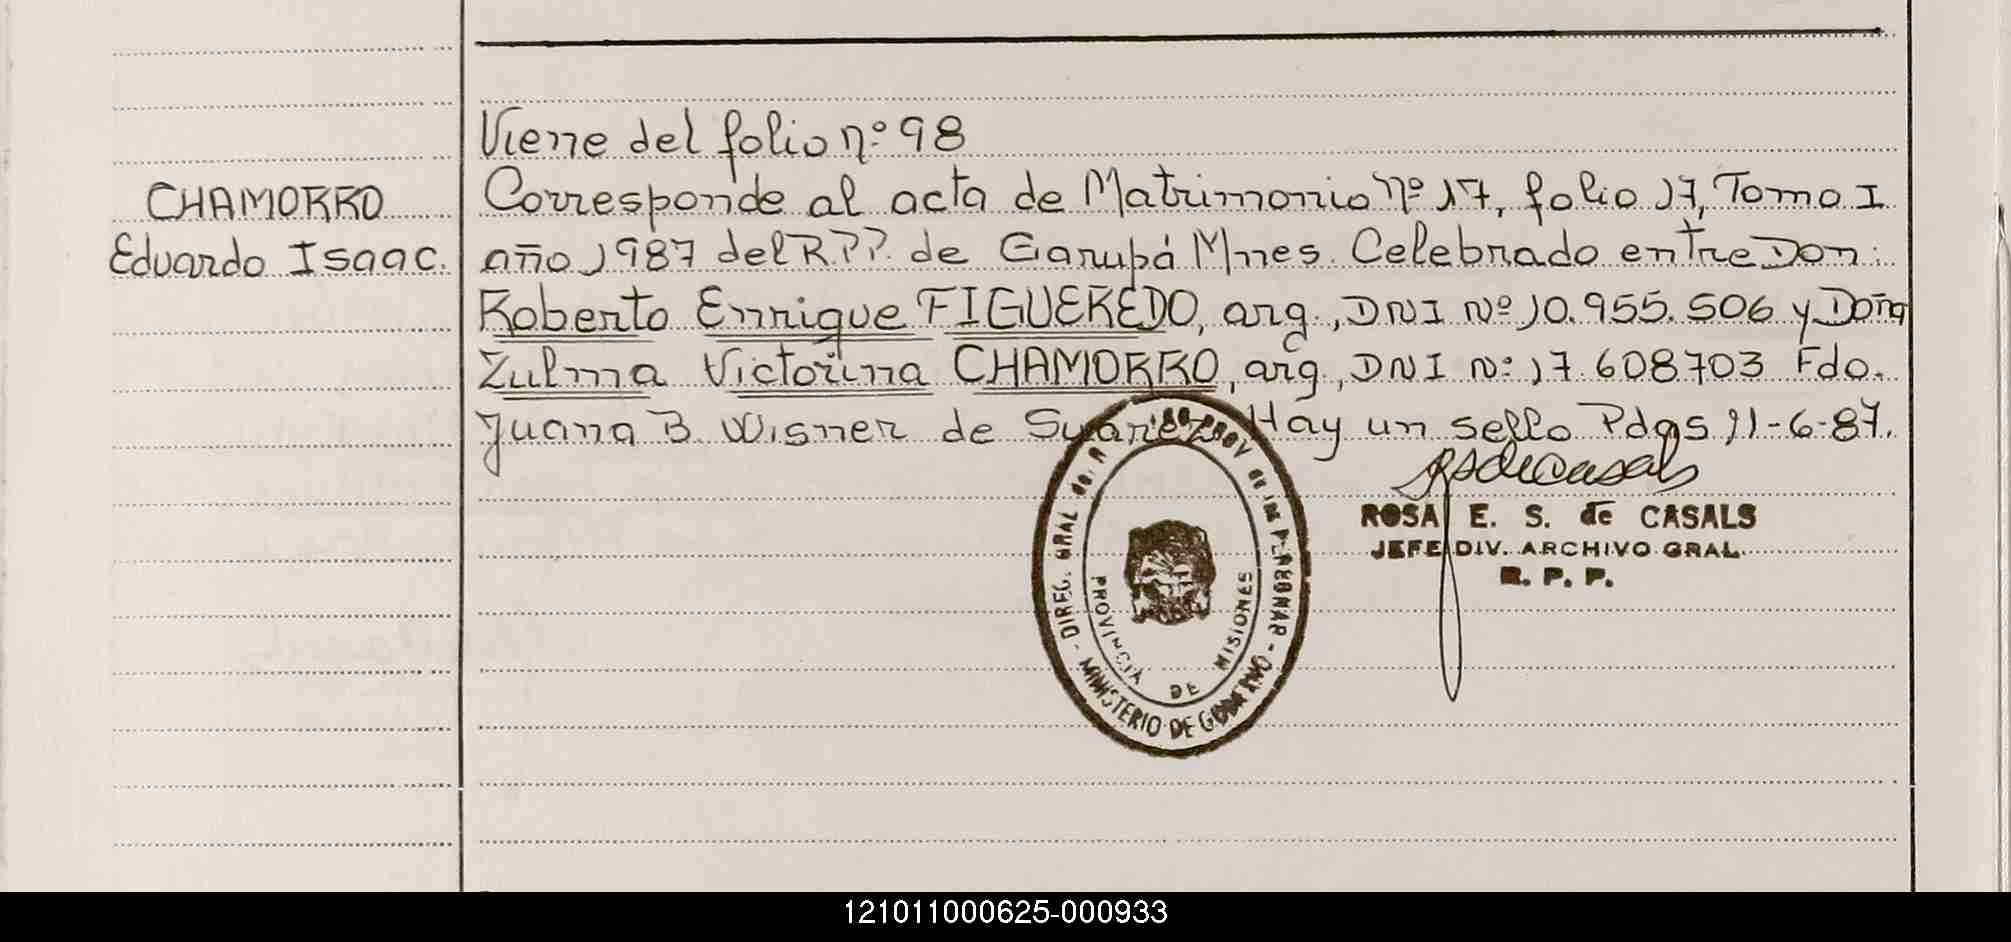 Viene del folio nº 98
CHAMORRO
Eduardo Isaac.
Corresponde al acta de Matrimonio Nº 17, folio 17, Tomo I
año 1987 del R.P.P. de Garupá Mnes. Celebrado entre Don:
Roberto Enrique FIGUEREDO, arg., DNI Nº 10.955.506 y Doña
Zulma Victorina CHAMORRO, arg., DNI Nº 17.608703 Fdo.
Juana B. Wisner de Suarez. Hay un sello Pdas 11-6-87.
ROSA E. S. de CASALS
JEFE DIV. ARCHIVO GRAL.
R. P. P.
DIREG. GRAL del R PROV de las PERSONAS - MINISTERIO DE GOBIERNO -
PROVINCIA DE MISIONES
121011000625-000933